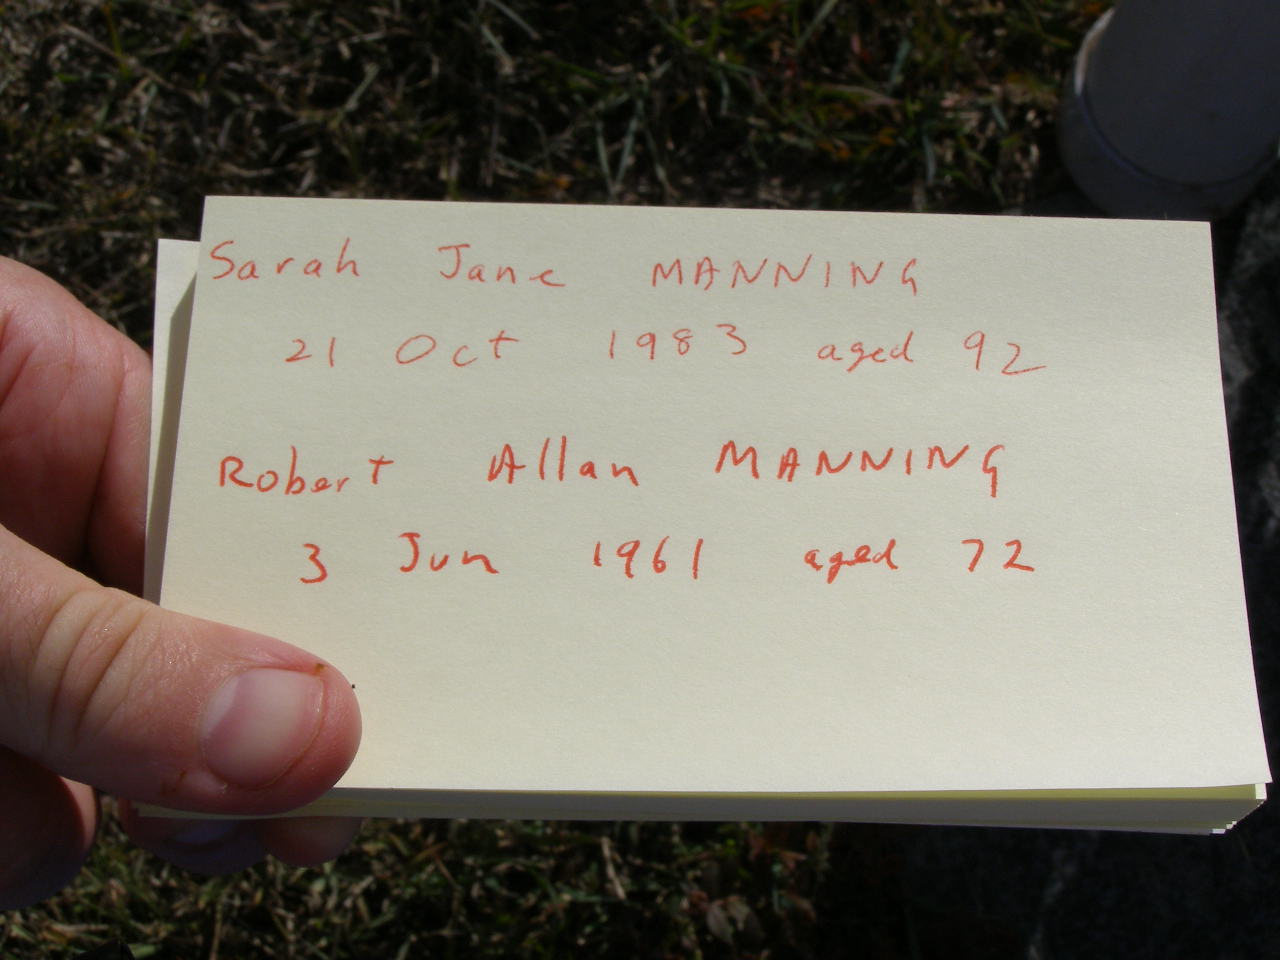 Sarah Jane MANNING
21 Oct 1983 aged 92
Robert Allan MANNING
3 Jun 1961 aged 72